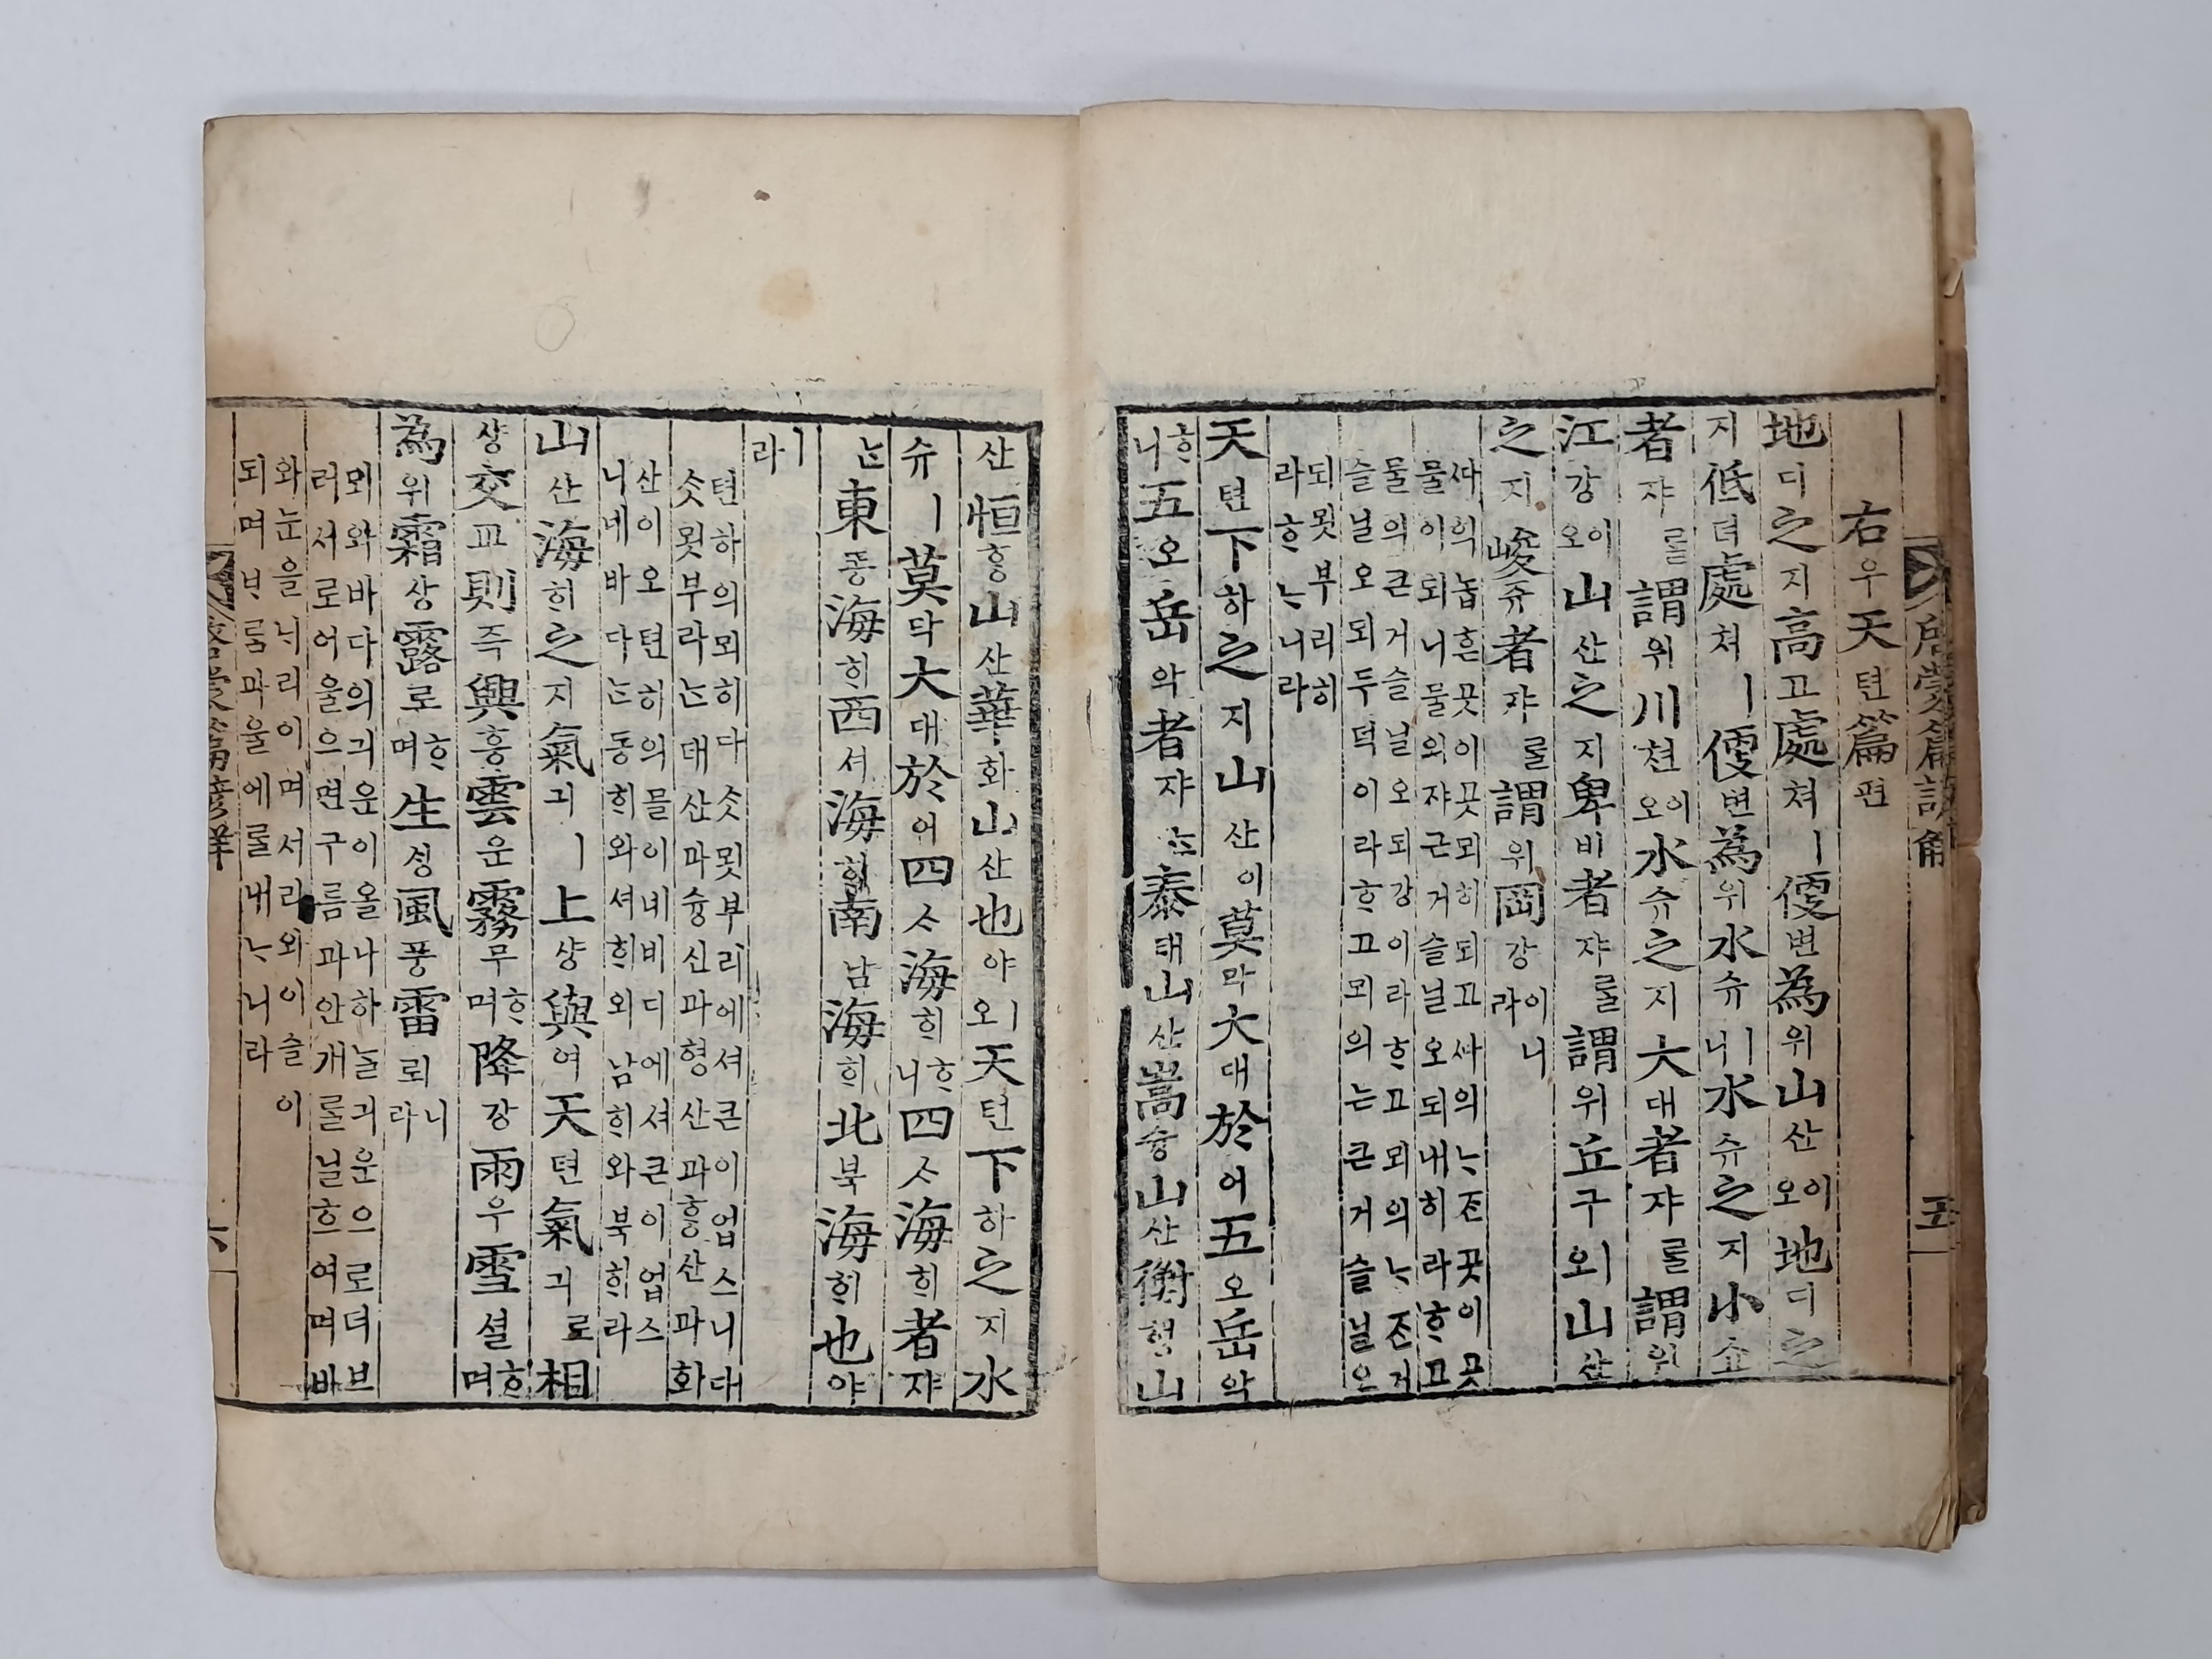 啓蒙篇諺解 五
右우天텬篇편
地디之지高고處쳐ㅣ便변為위山산이오地디之
지低뎌處쳐ㅣ便변為위水슈ㅣ니水슈之지小쇼
者쟈ᄅᆞᆯ謂위川쳔이오水슈之지大대者쟈ᄅᆞᆯ謂위
江강이오山산之지卑비者쟈ᄅᆞᆯ謂위丘구ㅣ오山산
之지峻쥰者쟈ᄅᆞᆯ謂위岡강이니라
싸의놉흔곳이곳뫼히되고싸의ᄂᆞᄌᆞᆫ곳이곳
물이되니물외쟈근거슬닐오되내히라ᄒᆞ고
물의큰거슬닐오되강이라ᄒᆞ고뫼의ᄂᆞᄌᆞᆫ거
슬닐오되두덕이라ᄒᆞ고뫼의는큰거슬닐으
되묏부리히
라ᄒᆞᄂᆞ니라
天텬下하之지山산이莫막大대於어五오岳악
ᄒᆞ니五오岳악者쟈ᄂᆞᆫ泰태山산嵩슝山산衡형山
산恒ᄒᆞᆼ山산華화山산也야ㅣ오天텬下하之지水
슈ㅣ莫막大대於어四ᄉᆞ海ᄒᆡᄒᆞ니四ᄉᆞ海ᄒᆡ者쟈
ᄂᆞᆫ東동海ᄒᆡ西셔海ᄒᆡ南남海ᄒᆡ北북海ᄒᆡ也야
ㅣ라
텬하의뫼히다솟묏부리에셔큰이업스니대
솟묏부라ᄂᆞᆫ태산파슝신파형산파ᄒᆞᆼ산파화
산이오텬히의믈이네비디에셔큰이업스
니네바다ᄂᆞᆫ동ᄒᆡ와셔ᄒᆡ외남ᄒᆡ와북ᄒᆡ라
山산海ᄒᆡ之지氣긔ㅣ上샹與여天텬氣긔로相
샹交교則즉興흥雲운霧무ᄒᆞ며降강雨우雪셜ᄒᆞ며
為위霜상露로ᄒᆞ며生ᄉᆡᆼ風풍雷뢰니라
뫼와바다의긔운이올나하ᄂᆞᆯ긔운으로뎌브
러서로어울으면구름과안개ᄅᆞᆯ닐흐여며바
와눈을ᄂᆡ리이며서라와이슬이
되며ᄇᆞᄅᆞᆷ파울에ᄅᆞᆯ내ᄂᆞ니라
啓蒙篇諺解 六